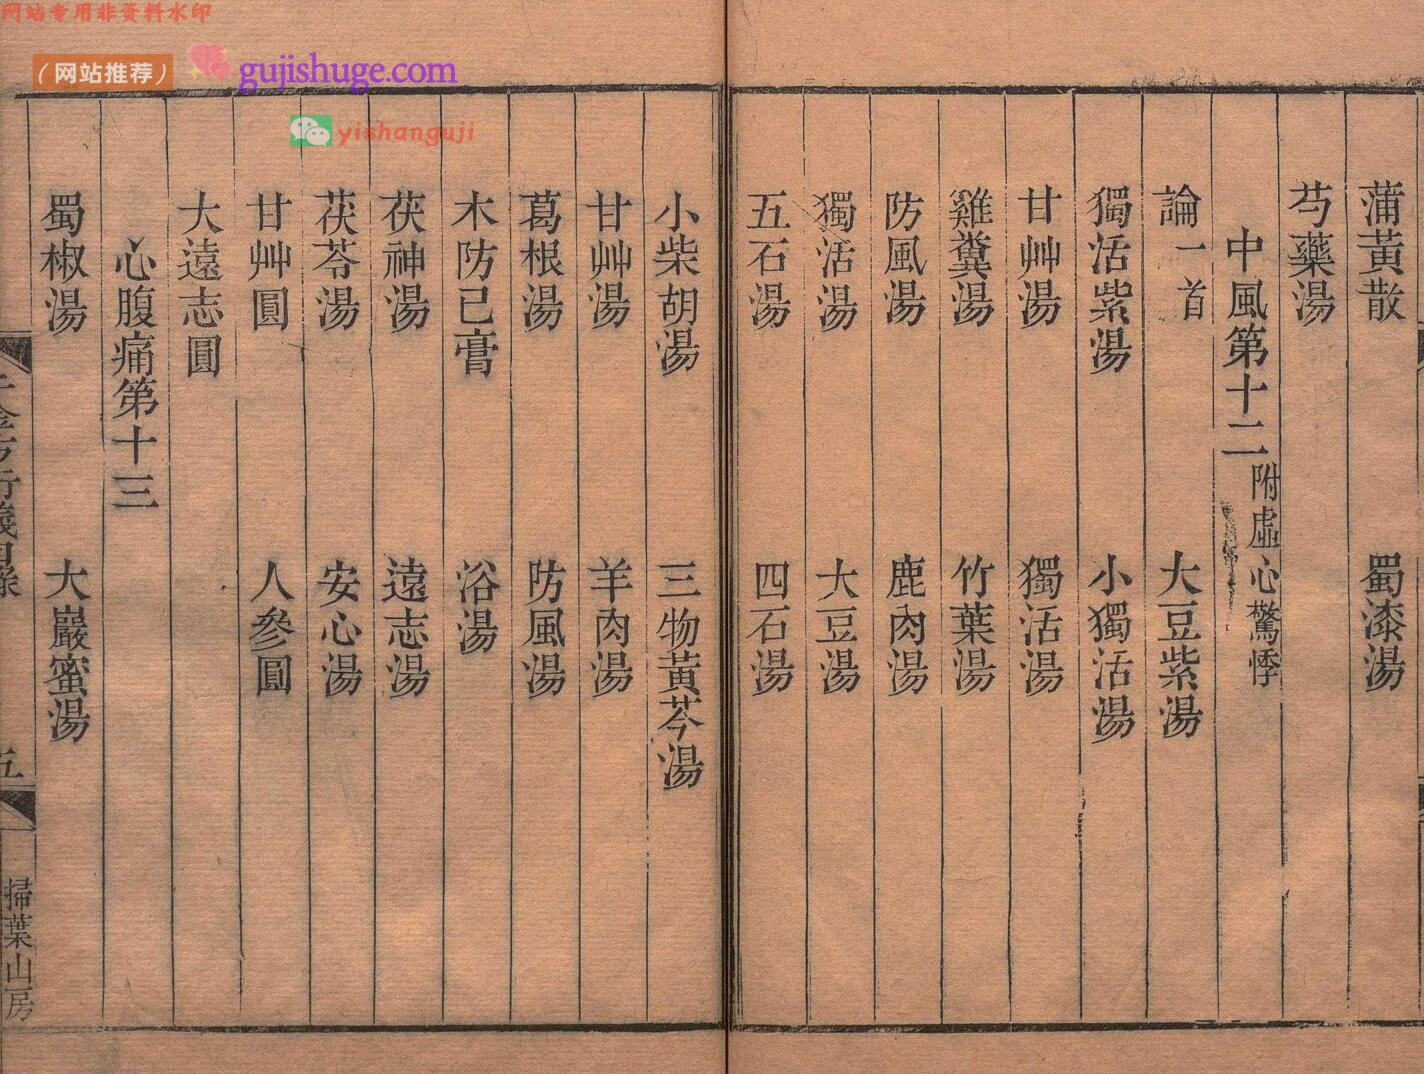 网站专用非资料水印
（网站推荐）
gujishuge.com
yishanguji
蒲黃散 蜀漆湯
芍藥湯
中風第十二 附虛心驚悸
論一首 大豆紫湯
獨活紫湯 小獨活湯
甘艸湯 獨活湯
雞糞湯 竹葉湯
防風湯 鹿肉湯
獨活湯 大豆湯
五石湯 四石湯
小柴胡湯 三物黃芩湯
甘艸湯 羊肉湯
葛根湯 防風湯
木防己膏 浴湯
茯神湯 遠志湯
茯苓湯 安心湯
甘艸圓 人參圓
大遠志圓
心腹痛第十三
蜀椒湯 大巖蜜湯
千金方衍義目錄 五 掃葉山房